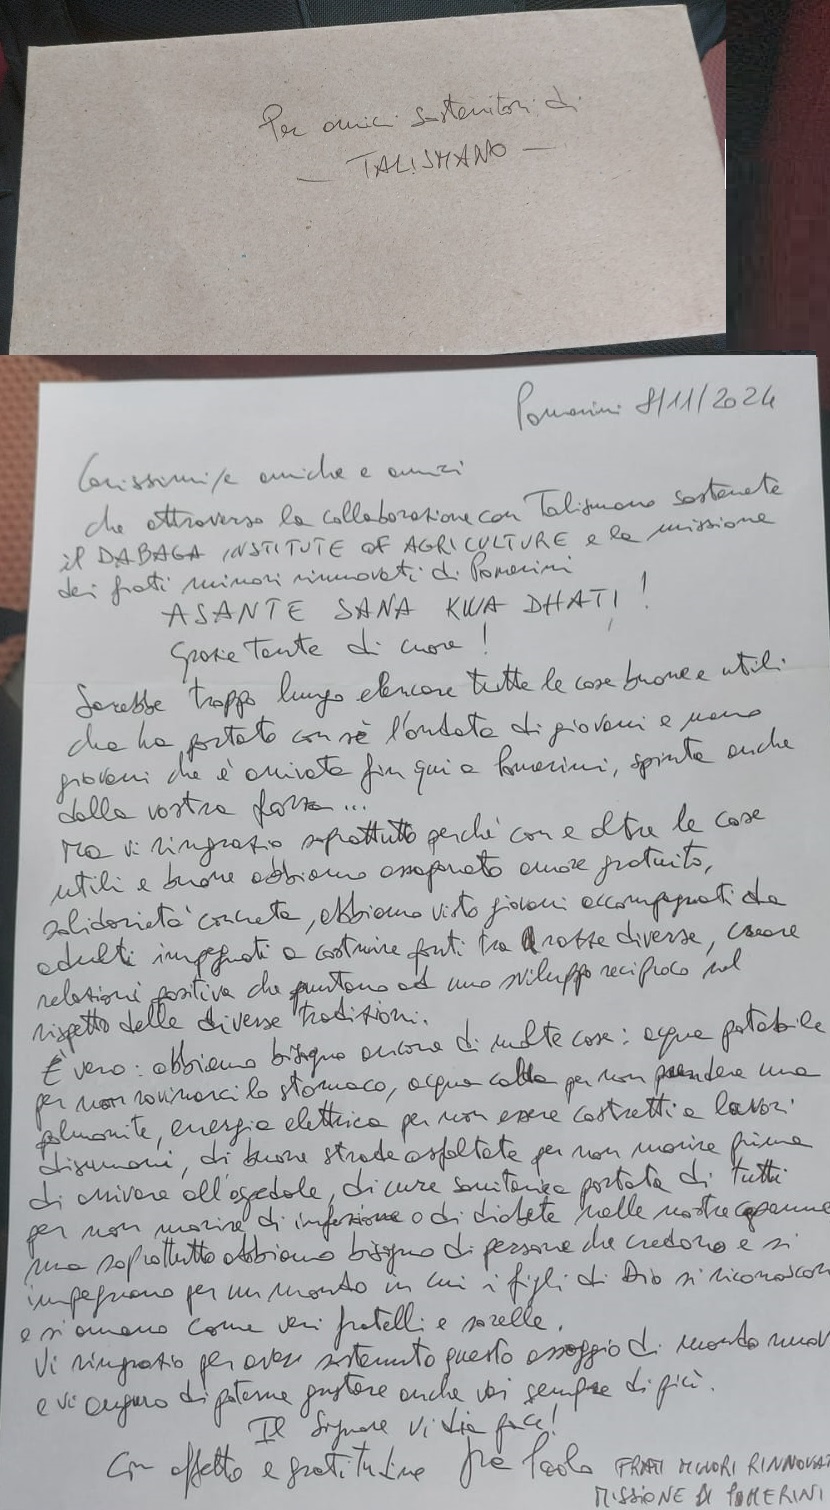 Per amici sostenitori di
— TALISMANO —
Pomerini 8/11/2024
Carissimi/e amiche e amici
che attraverso la collaborazione con Talismano sostenete
il DABAGA INSTITUTE OF AGRICULTURE e la missione
dei frati minori rinnovati di Pomerini
ASANTE SANA KWA DHATI!
Grazie tante di cuore!
Sarebbe troppo lungo elencare tutte le cose buone e utili
che ha portato con sè l'ondata di giovani e meno
giovani che è arrivata fin qui a Pomerini, spinta anche
dalla vostra forza...
Ma vi ringrazio soprattutto perché con e oltre le cose
utili e buone abbiamo assaporato amore gratuito,
solidarietà concreta, abbiamo visto giovani accompagnati da
adulti impegnati a costruire ponti tra razze diverse, creare
relazioni positive che puntano ad uno sviluppo reciproco nel
rispetto delle diverse tradizioni.
È vero: abbiamo bisogno ancora di molte cose: acqua potabile
per non rovinarci lo stomaco, acqua calda per non prendere una
polmonite, energia elettrica per non essere costretti a lavori
disumani, di buone strade asfaltate per non morire prima
di arrivare all'ospedale, di cure sanitarie portata di tutti
per non morire di infezione o di diabete nelle nostre capanne
ma soprattutto abbiamo bisogno di persone che credono e si
impegnano per un mondo in cui i figli di Dio si riconoscon
e si amano come veri fratelli e sorelle.
Vi ringrazio per aver sostenuto questo assaggio di mondo nuov
e vi auguro di poterne gustare anche voi sempre di più.
Il Signore vi dia pace!
Con affetto e gratitudine fra Paolo FRATI MINORI RINNOVAT
MISSIONE DI POMERINI